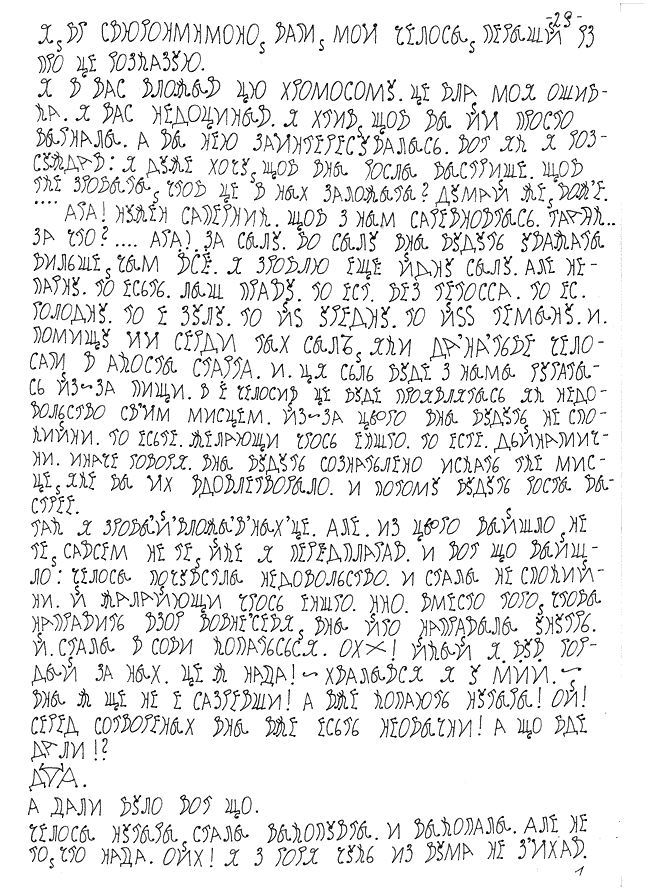 -29-
МОИ ЧЕЛОСЫ, РЗ
ПРО ЦЕ РОЗКАЗУЮ.
Я В ВАС ВЛОЖЫВ ЦЮ ХРОМОСОМУ. ЦЕ БЛА МОЯ ОШИБ-
КА. Я ВАС НЕДОЦИНЫВ. Я ХТИВ, ЩОБ ВЫ ЙИ ПРОСТО
ВЫГНАЛЫ. А ВЫ НЕЮ ЗАИНТЕРЕСУВАЛЫСЬ. ВОТ ЯК Я РОЗ-
Я ДУЖЕ ХОЧУ, ЩОБ ВНЫ РОСЛЫ БЫСТРИШЕ. ЩОБ
ЦЕ В НЫХ ЗАЛОЖЫТЫ? ДУМАЙ ЖЕ, БОЖ'Е.
.... АГА! НУЖЕН САПЕРНИК. ЩОБ З НЫМ САРЕВНОВТЫСЬ.
ЗА ЧТО? .... АГА! ЗА СЫЛУ. БО СЫЛУ ВНЫ БУДУТЬ УВАЖАТЫ
БИЛЬШЕ, ЧЫМ ВСЕ. Я ЗРОБЛЮ ЕЩЕ ЙДНУ СЫЛУ. АЛЕ НЕ-
ПАРНУ. ТО ЕСЬТЬ. ЛЫШ ПРАВУ. ТО ЕСТ. БЕЗ ТЕГОССА. ТО ЕС.
ГОЛОДНУ. ТО Е ЗУЛУ. ТО ЙS УРЕДНУ. ТО ЙSS ТЕМЫНУ. И.
ПОМИЩУ ЙИ СЕРДИ ТЫХ СЫЛЪ, ЯКИ ЧЕЛО-
САТИ В АКОСТЫ СТАРТА. И. ЦЯ СЫЛЬ БУДЕ З НЫМЫ РУГАТЫ-
СЬ ИЗ~ЗА ПИЩИ. В Е ЧЕЛОСИВ ЦЕ БУДЕ ПРОЯВЛЯТЫСЬ ЯК НЕДО-
ВОЛЬСТВО СВ'ИМ МИСЦЕМ. ЙИЗ~ЗА ЦЬОГО ВНЫ БУДУТЬ НЕ СПО-
КИЙНИ. ТО ЕСЬТЕ. ЖЕЛАЮЩИ ЧТОСЬ ЕНШГО. ТО ЕСТЕ. ДЫЙНАМИЧ-
НИ. ИНАЧЕ ГОВОРЯ. ВНЫ БУДУТЬ СОЗНАТЬЕЛЕНО ИСКАТЬ ТКЕ МИС-
ЦЕ, ЯКЕ БЫ ИХ ВДОВЛЕТВОРЫЛО. И ПОТОМУ БУДУТЬ РОСТЫ БЫ-
СТРЕЕ.
ТАК Я ЗРОБЫ'Й'ВЛОЖЫ'В'НЫХ'ЦЕ. АЛЕ. ИЗ ЦЬОГО ВЫЙШЛО, НЕ
ТЕ, САВСЕМ НЕ ТЕ, ЙКЕ Я ПЕРЕДПЛАГАВ. И ВОТ ЩО ВЫЙЩ-
ЛО: ЧЕЛОСЫ ПОЧУВСТЛЫ НЕДОВОЛЬСТВО. И СТАЛЫ НЕ СПОКИЙ-
НИ. Й ЖАЛАЙЮЩИ ЧТОСЬ ЕНШГО. ННО. ВМЕСТО ТОГО, ЧТОБЫ
НАПРАВИТЬ ВЗОР ВОВНЕ'СЕБЯ, ВНЫ ЙГО НАПРАВЫЛЫ ЎНУТРЬ.
Й. СТАЛЫ В СОБИ КОПАТЬСЬСЯ. ОХХ! ЙКЫЙ Я БУВ ГОР-
ДЫЙ ЗА НЫХ. ЦЕ Ж НАДА! ~ ХВАЛЫВСЯ Я У МЙЙ. ~
ВНЫ Ж ЩЕ НЕ Е САЗРЕВШИ! А ВЖЕ КОПАЮТЬ НУТАРЫ! ОЙ!
СЕРЕД СОТВОРЕНЫХ ВНЫ ВЖЕ ЕСЬТЬ НЕОБЫЧНИ! А ЩО БДЕ
ДРЛИ!?
ДУГА.
А ДАЛИ БУЛО ВОТ ЩО.
ЧЕЛОСЫ НУТАРЫ, СТАЛЫ ВЫКОПУВТЫ. И ВЫКОПАЛЫ. АЛЕ НЕ
ТО, ЧТО НАДА. ОЙХ! Я З ГОРЯ ЧУТЬ ИЗ ВУМА НЕ З'ИХАВ.
1